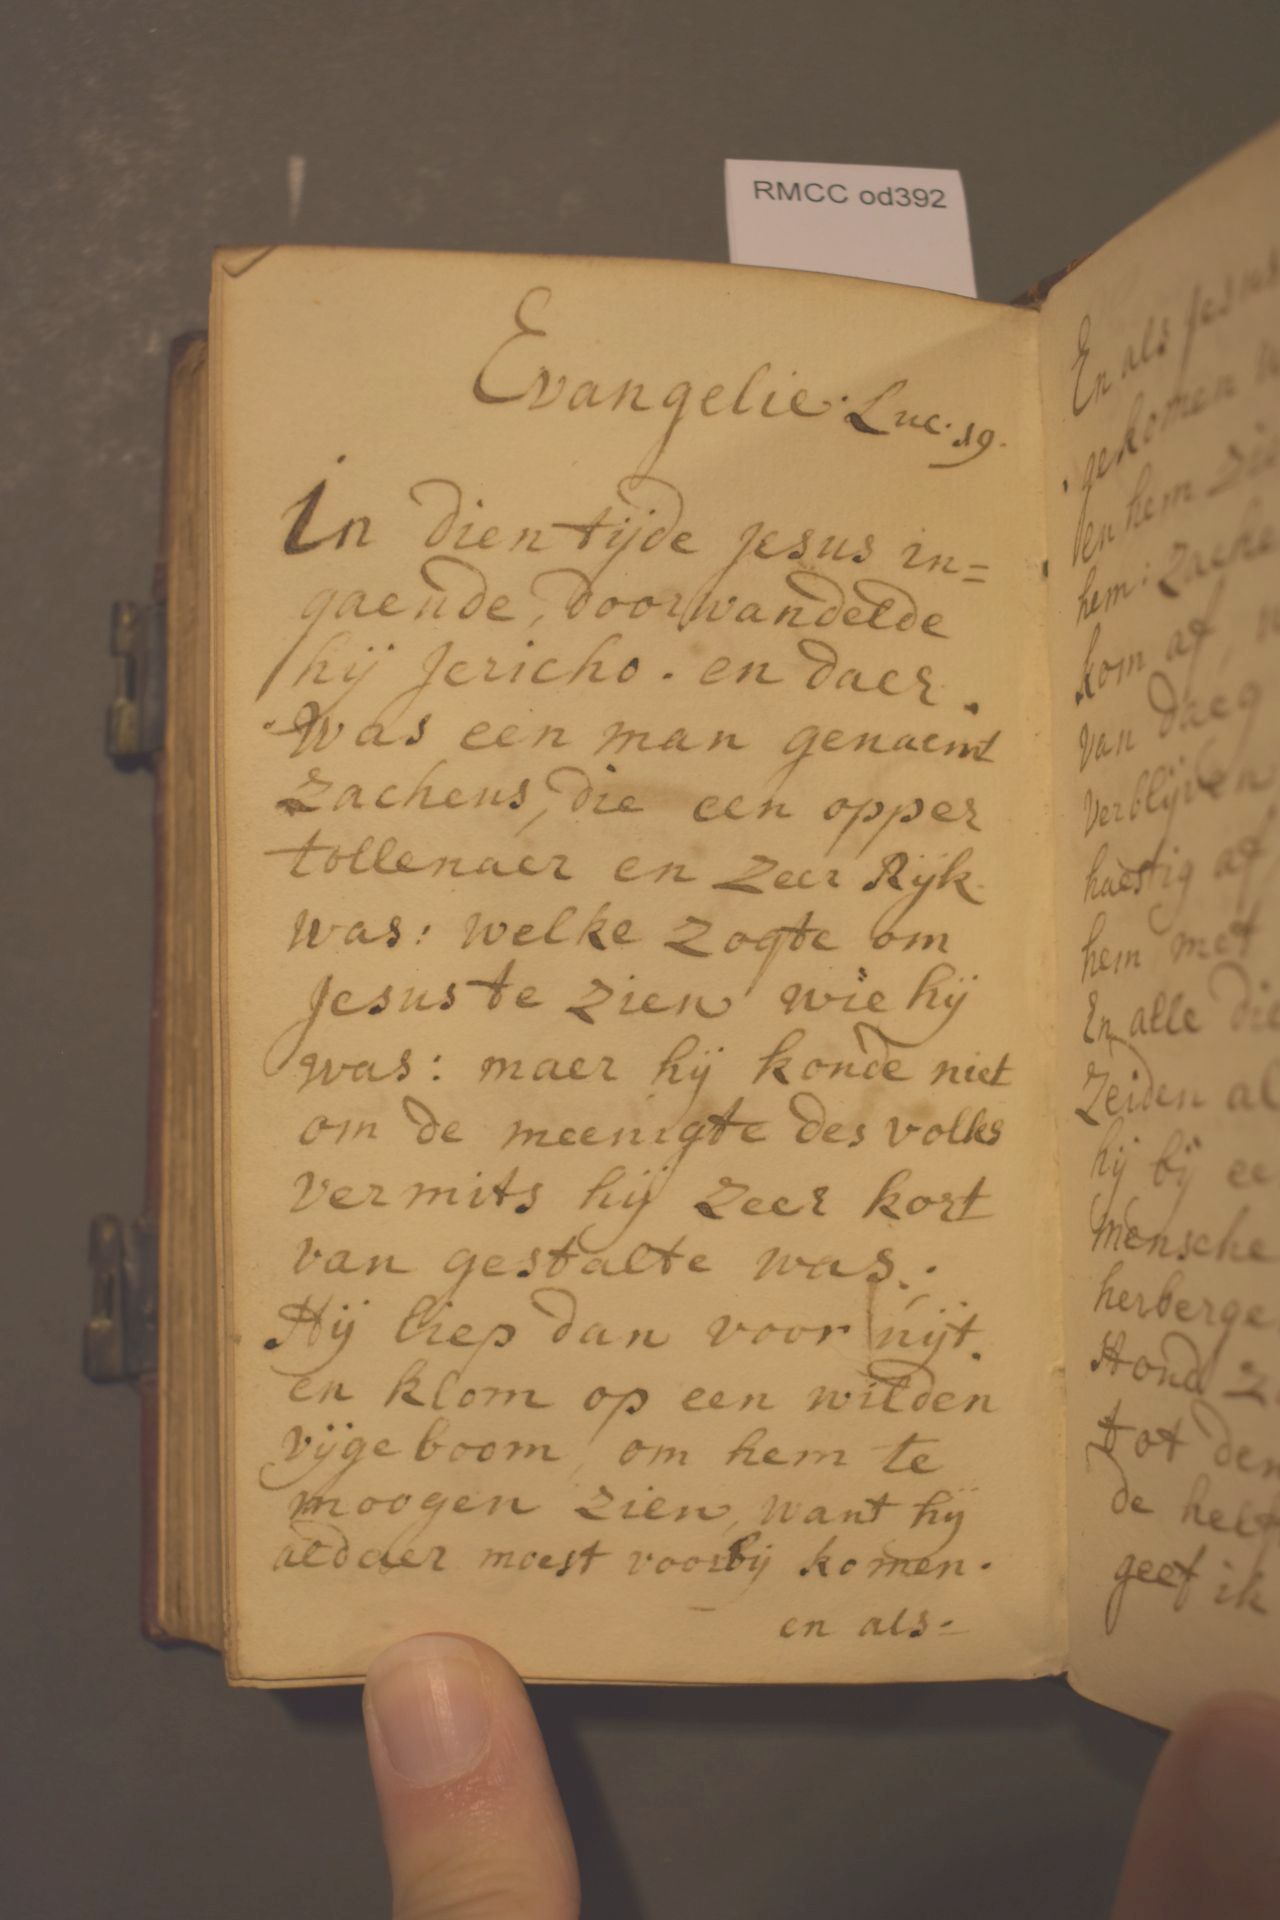 RMCC od392
Evangelie. Luc. 19.
In dien tijde Jesus in=
gaende, doorwandelde
hij Jericho. en daer
was een man genaemt
Zacheus, die een opper
tollenaer en zeer Rijk
was: welke zogte om
Jesus te zien wie hij
was: maer hij konde niet
om de meenigte des volks
vermits hij zeer kort
van gestalte was.
Hij liep dan voor uijt.
en klom op een wilden
vijgeboom, om hem te
moogen zien, want hij
aldaer moest voorbij komen.
en als=
En als Jesus
gekomen
en hem zie
hem: Zache
kom af,
van daeg
Verblijven
haestig af
hem met
En alle die
Zeiden al
hij bij ee
mensche
herberge
stond z
tot den
de helf
geef ik